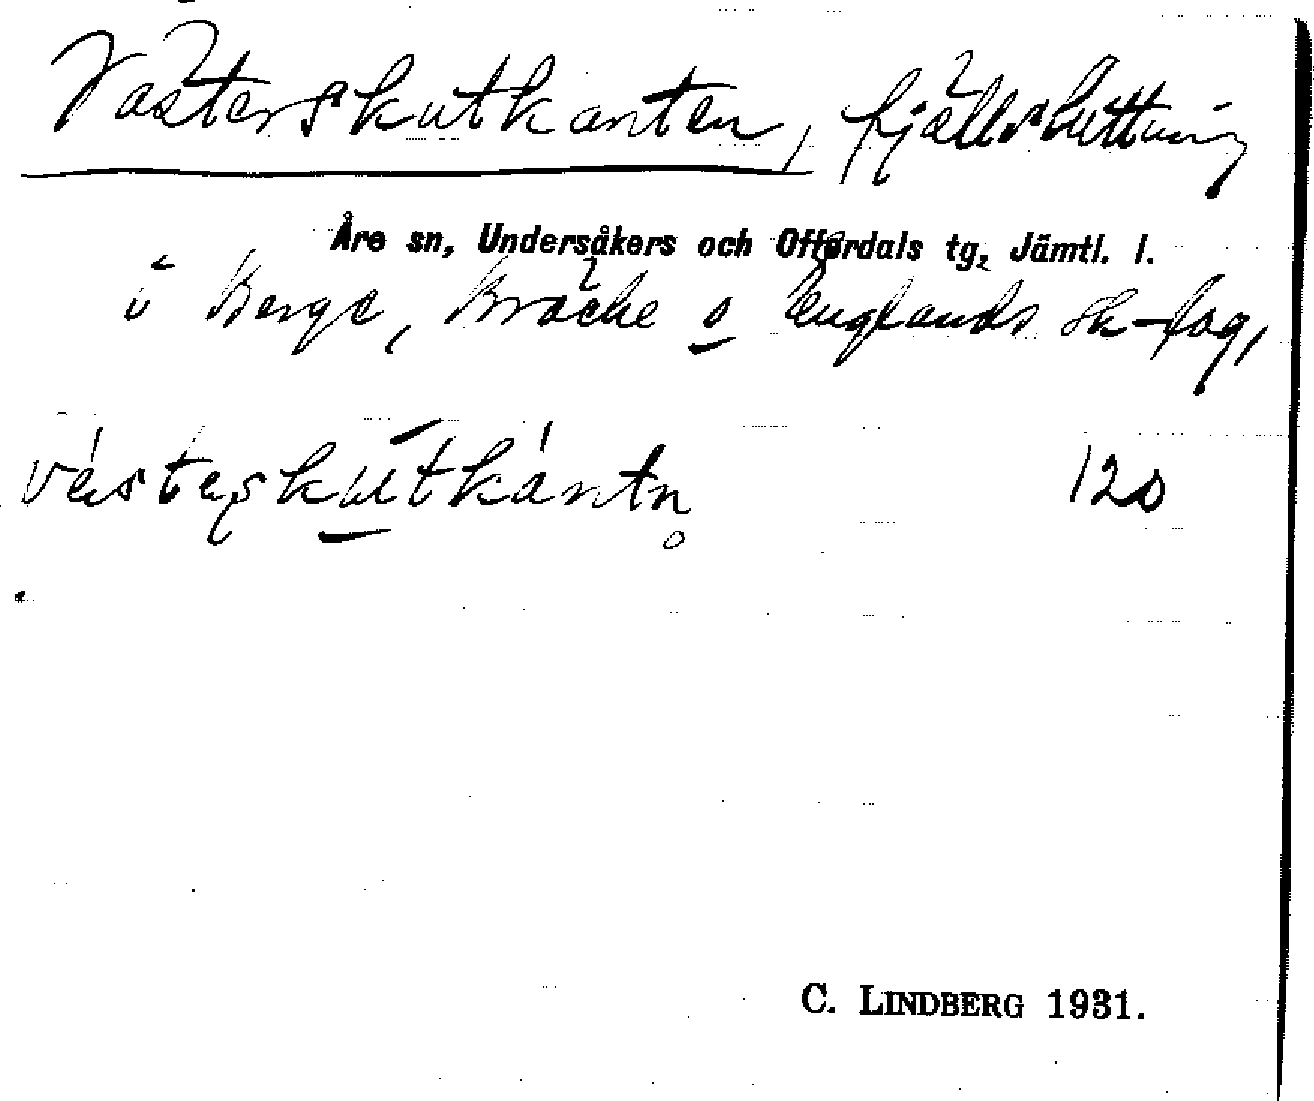 Västerskutkanten, fjällsluttning
Åre sn, Undersåkers och Offerdals tg, Jämtl. l.
i Berge, Bräcke o Englands sk-lag,
vásteʂkutkántn̥ 120
C. LINDBERG 1931.